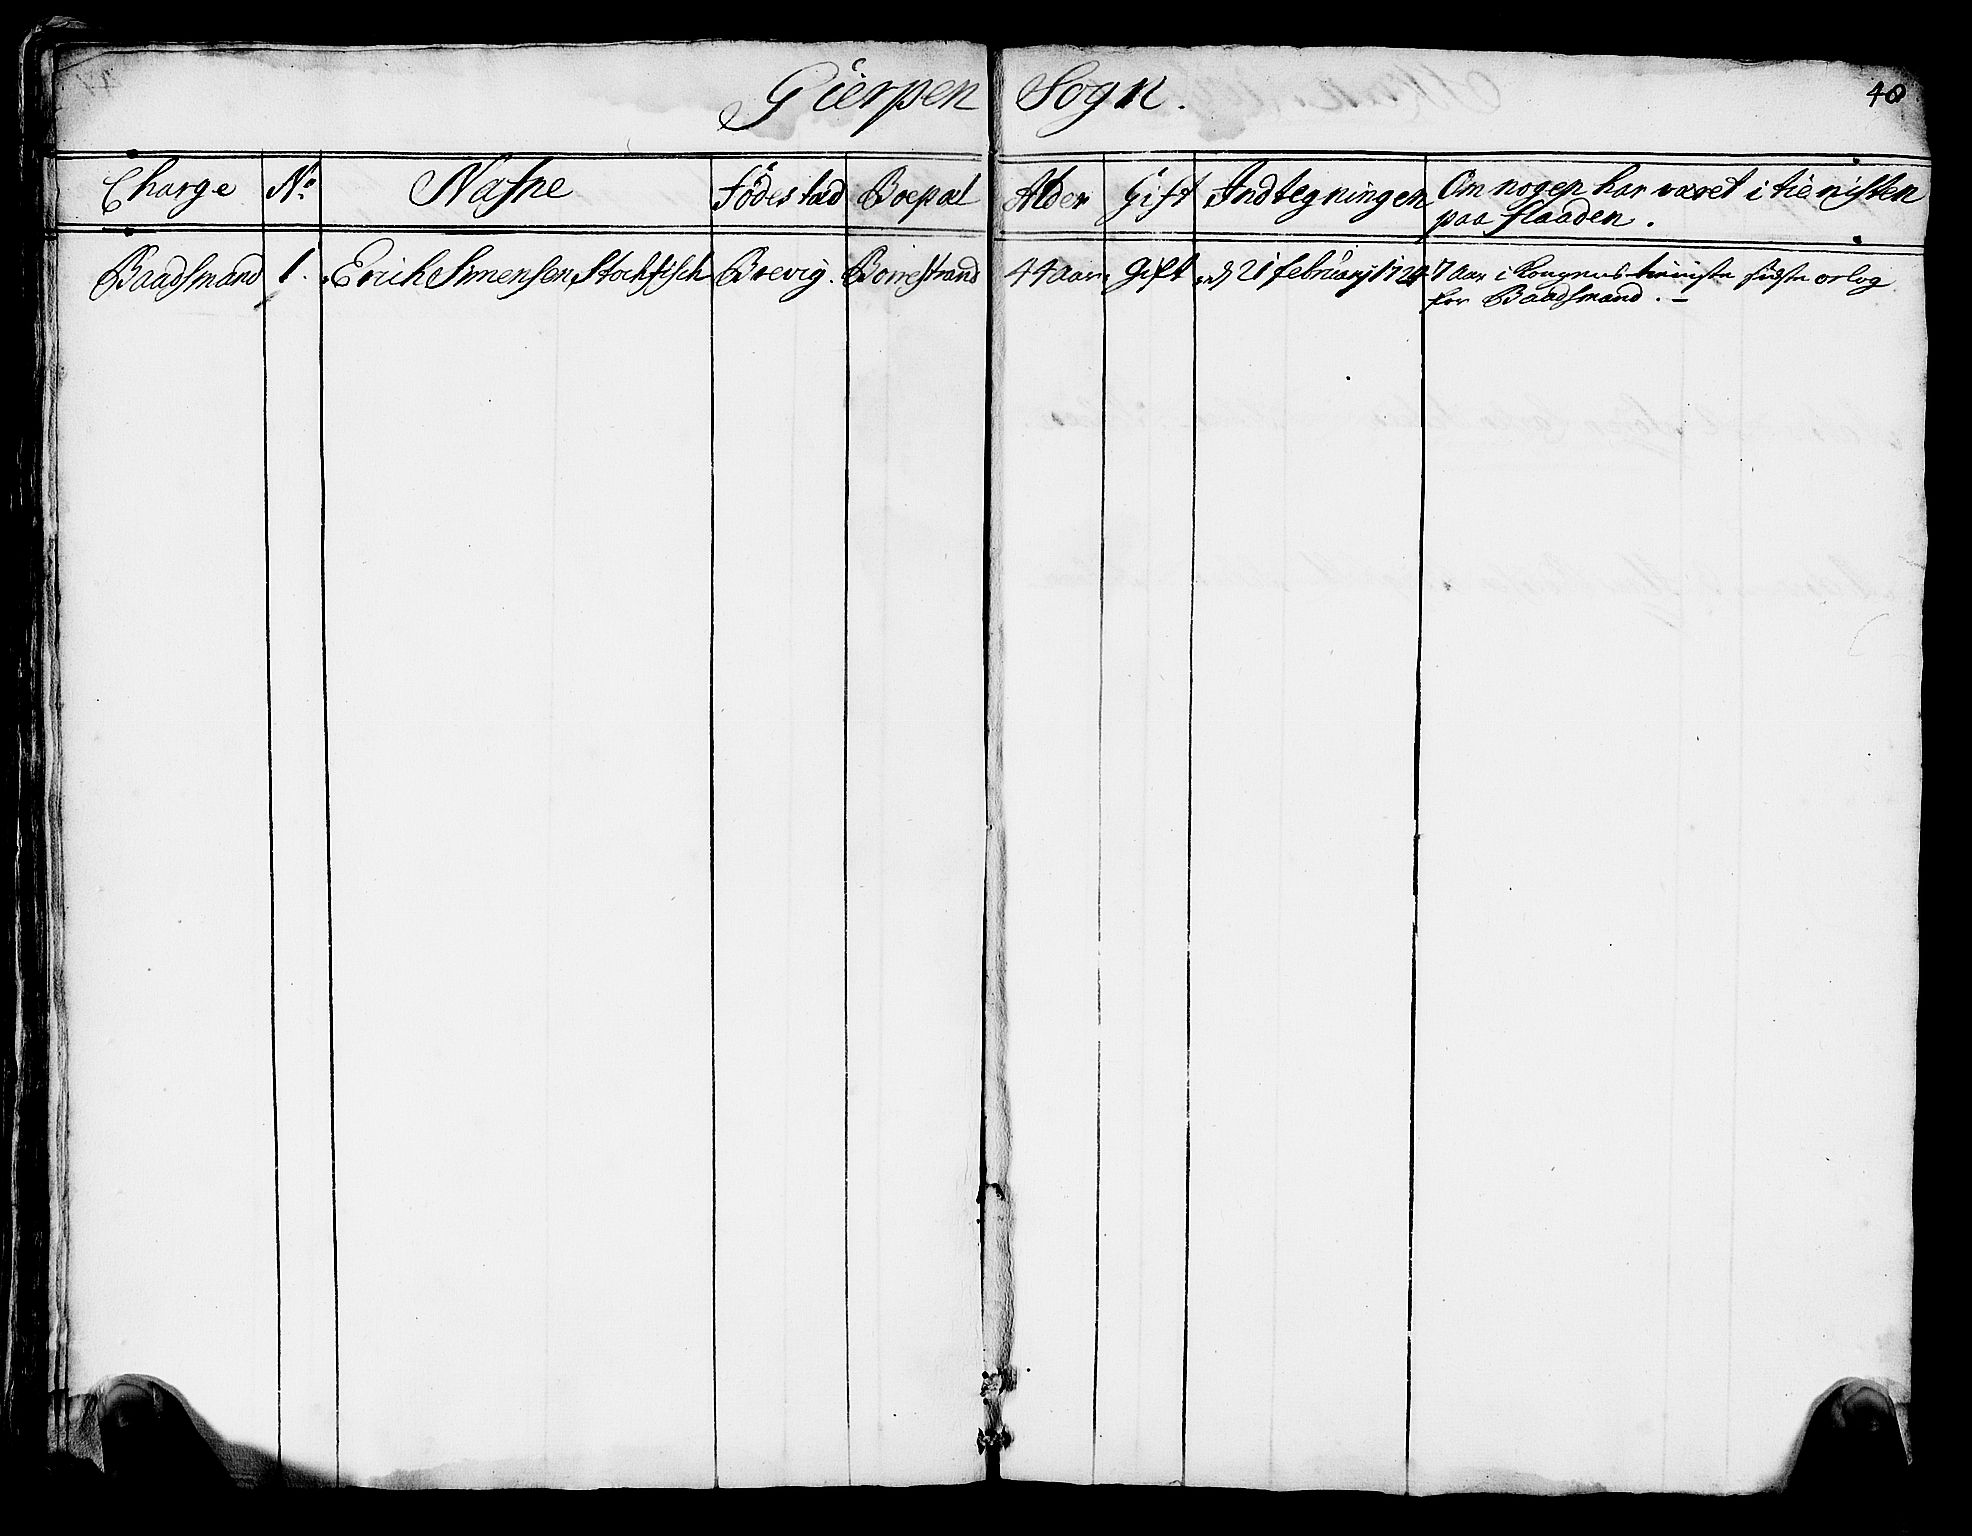 Gierpen Sogn.
40
Charge No. Nafne Födestæd Boepæl Alder Gift Indtegningen Om nogen har været i tienisten
paa flaaden.
Baadsmand 1. Erich Simensen Stochfisch Brevig. Borrestrand 44 aar. Gift d 21 february 1724 7 aar i Kongens tieniste sidste orlog
for Baadsmand. -